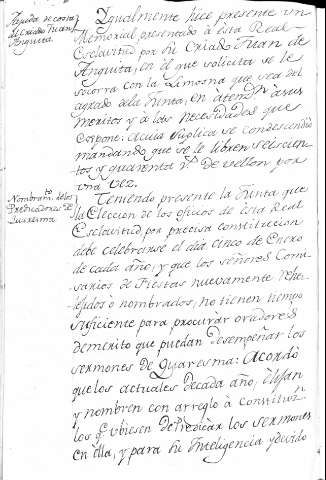 Ayuda de costa
al Criado Juan
Anguita.
Igualmente hice presente un
Memorial presentado à esta Real
Esclavitud por su Criado Juan de
Anguita, en el que solicita se le
socorra con la Limosna que sea del
agrado dela Junta, en atenz.n à sus
meritos y à las necesidades que
expone: â cuia suplica se condescendio
mandando que se le libren seiscien-
tos y quarenta r.s de vellon por
una vez.
Nombram.to delos
Predicadores de
Quaresma
Teniendo presente la Junta que
la Eleccion de los oficios de esta Real
Esclavitud por precisa constitucion
debe celebrarse el dia cinco de Enero
de cada año, y que los señores Comi-
sarios de Fiestas nuevamente Ree-
lejidos ò nombrados, no tienen tiempo
suficiente para procurar oradores
de merito que puedan desempeñar los
sermones de Quaresma: Acordò
que los actuales decada año, elijan
y nombren con arreglo à constituz.n
los q.e hubiesen de Predicar los sermones
en ella, y para su Inteligencia y devido